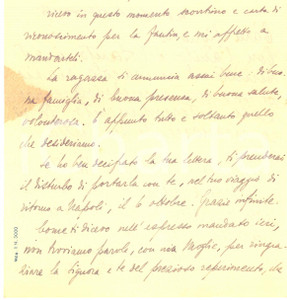 ricevo in questo momento scontrino e carta di
riconoscimento per la Gentin, e mi affretto a
mandarteli.
La ragazza si annuncia assai bene: di buo-
na famiglia, di buona presenza, di buona salute,
volonterosa. È appunto tutto e soltanto quello
che desideriamo.
Se ho ben decifrato la tua lettera, ti prenderai
il disturbo di portarla con te, nel tuo viaggio di
ritorno a Napoli, il 6 ottobre. Grazie infinite.
Come ti dicevo nell'espresso mandato ieri,
non troviamo parole, con mia Moglie, per ringra-
ziare la Signora e te del prezioso reperimento, che